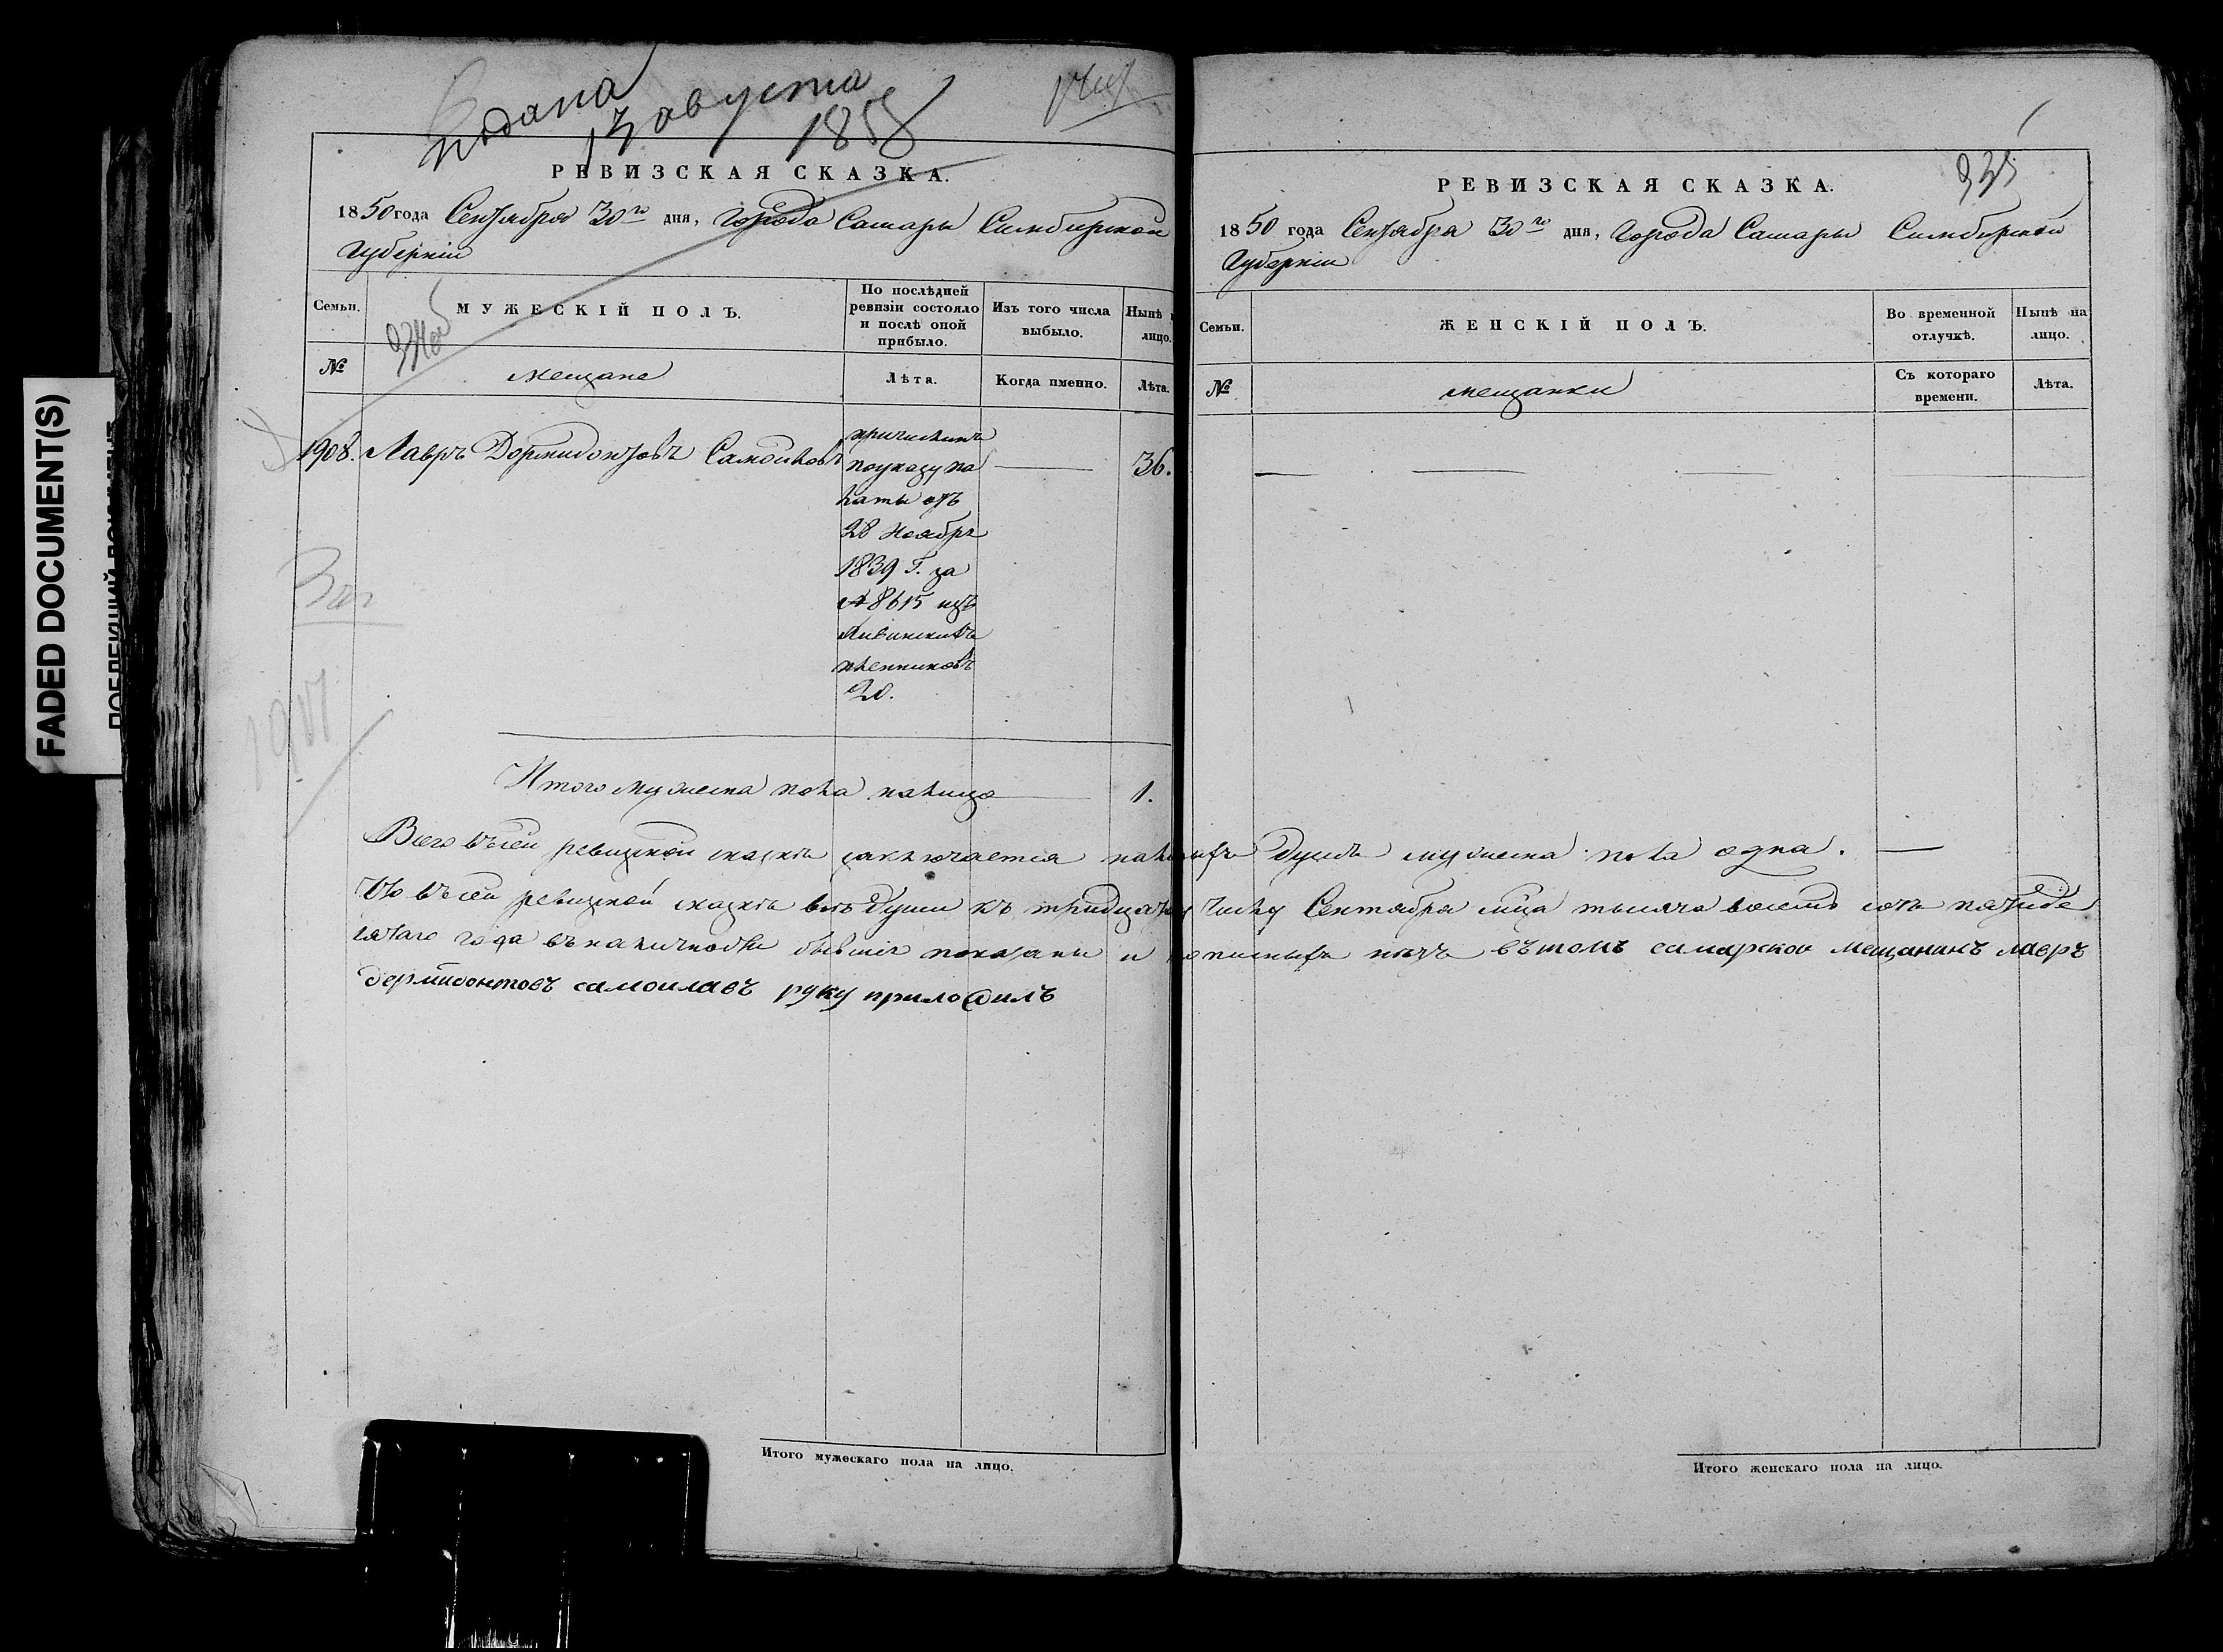 FADED DOCUMENT(S)
Подана
13 августа
1858
РЕВИЗСКАЯ СКАЗКА.
1850 года Сентября 30го дня, Города Самары Симбирской
Губернiи
Семьи.
МУЖЕСКIЙ ПОЛЪ.
По послѣдней
ревизiи состояло
и послѣ оной
прибыло.
Изъ того числа
выбыло.
Нынѣ
лицо.
№
мещане
Лѣта.
Когда именно.
Лѣта.
1908. Лавръ Дормидонтовъ Самойловъ
причисленъ
по указу па
латы отъ
28 Ноября
1839 Г. за
№ 8615 изъ
племенниковъ
20.
36.
Итого мужеска пола налицо 1.
Всего въ сей ревизской сказкѣ заключается наличныхъ душъ мужеска пола одна.
Что въ сей ревизской сказкѣ всѣ души къ тридцатому числу Сентября мца тысяча восемь сотъ пятиде
сятаго года въ наличности бывшiе показаны и прописныхъ нѣтъ въ томъ самарской мещанинъ лавръ
дермидонтовъ самоилавъ руку приложилъ
Итого мужескаго пола на лицо.
РЕВИЗСКАЯ СКАЗКА.
1850 года Сентября 30го дня, Города Самары Симбирской
Губернiи
Семьи.
ЖЕНСКIЙ ПОЛЪ.
Во временной
отлучкѣ.
Нынѣ на
лицо.
№
мещанки
Съ котораго
времени.
Лѣта.
Итого женскаго пола на лицо.